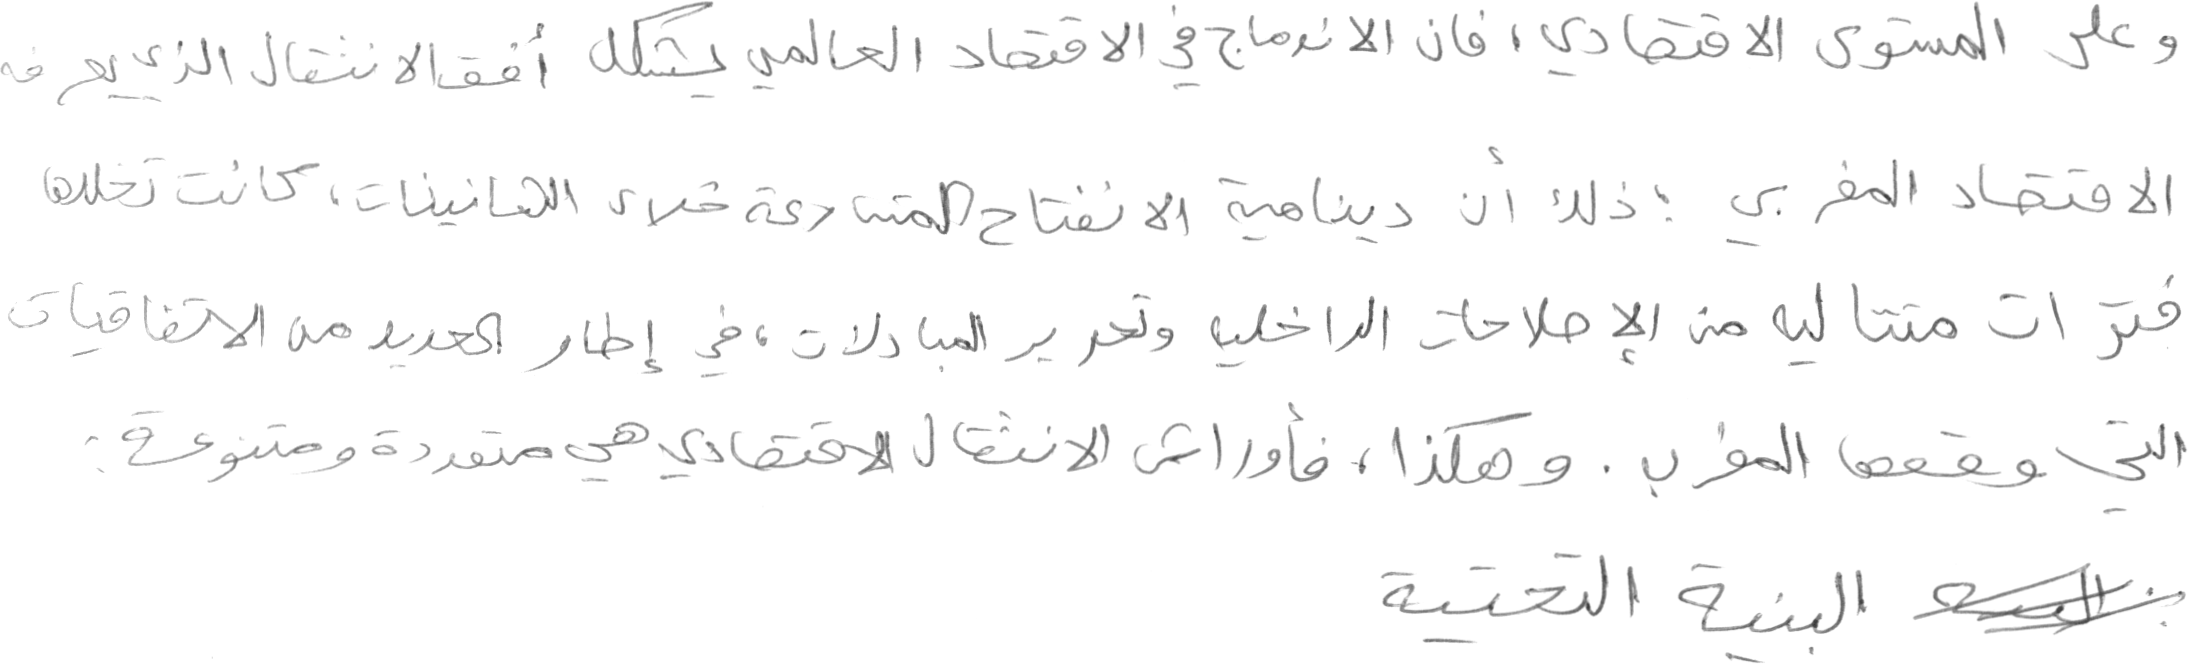 وعلى المستوى الاقتصادي، فان الاندماج في الاقتصاد العالمي يشكل أفق الانتقال الذي يعرفه
الاقتصاد المغربي ؛ ذلك أن دينامية الانفتاح المتسارعة خلال الثمانينات، كانت تخللها
فترات متتاليه من الإصلاحات الداخليه وتحرير المبادلات، في إطار العديد من الاتفاقيات
التي وقعها المغرب . وهكذا، فأوراش الانتقال الاقتصادي هي متعددة ومتنوعة :
البنية التحتية